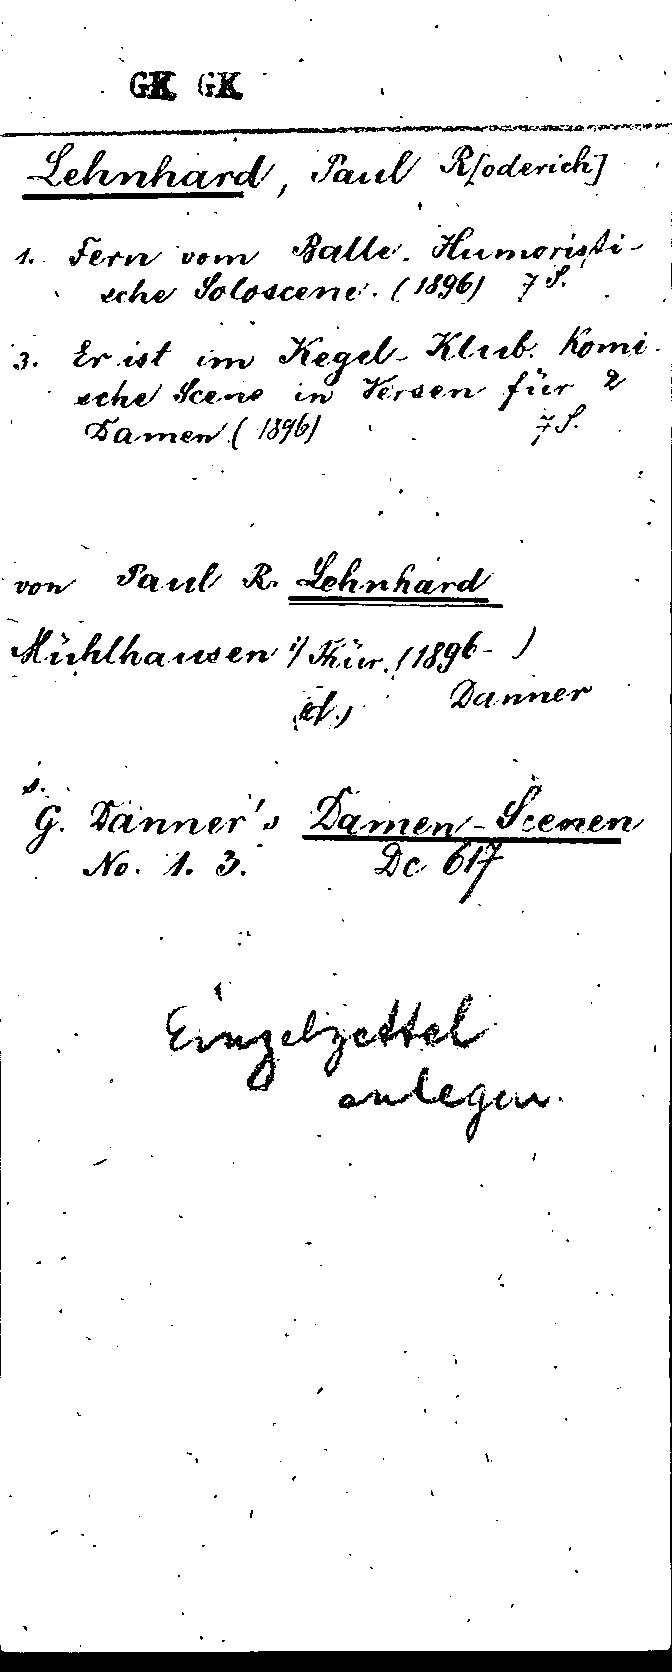 GK GK
Lehnhard, Paul R[oderich]
1. Fern vom Balle. Humoristi-
sche Soloscene. (1896) 7 S.
3. Er ist im Kegel-Klub. Komi-
sche Scene in Versen für 2
Damen (1896) 7 S.
von Paul R. Lehnhard
Mühlhausen i/Thür. (1896- )
Danner
s.
G. Danner's Damen-Scenen
No. 1. 3. Dc 617
Einzelzettel
anlegen.